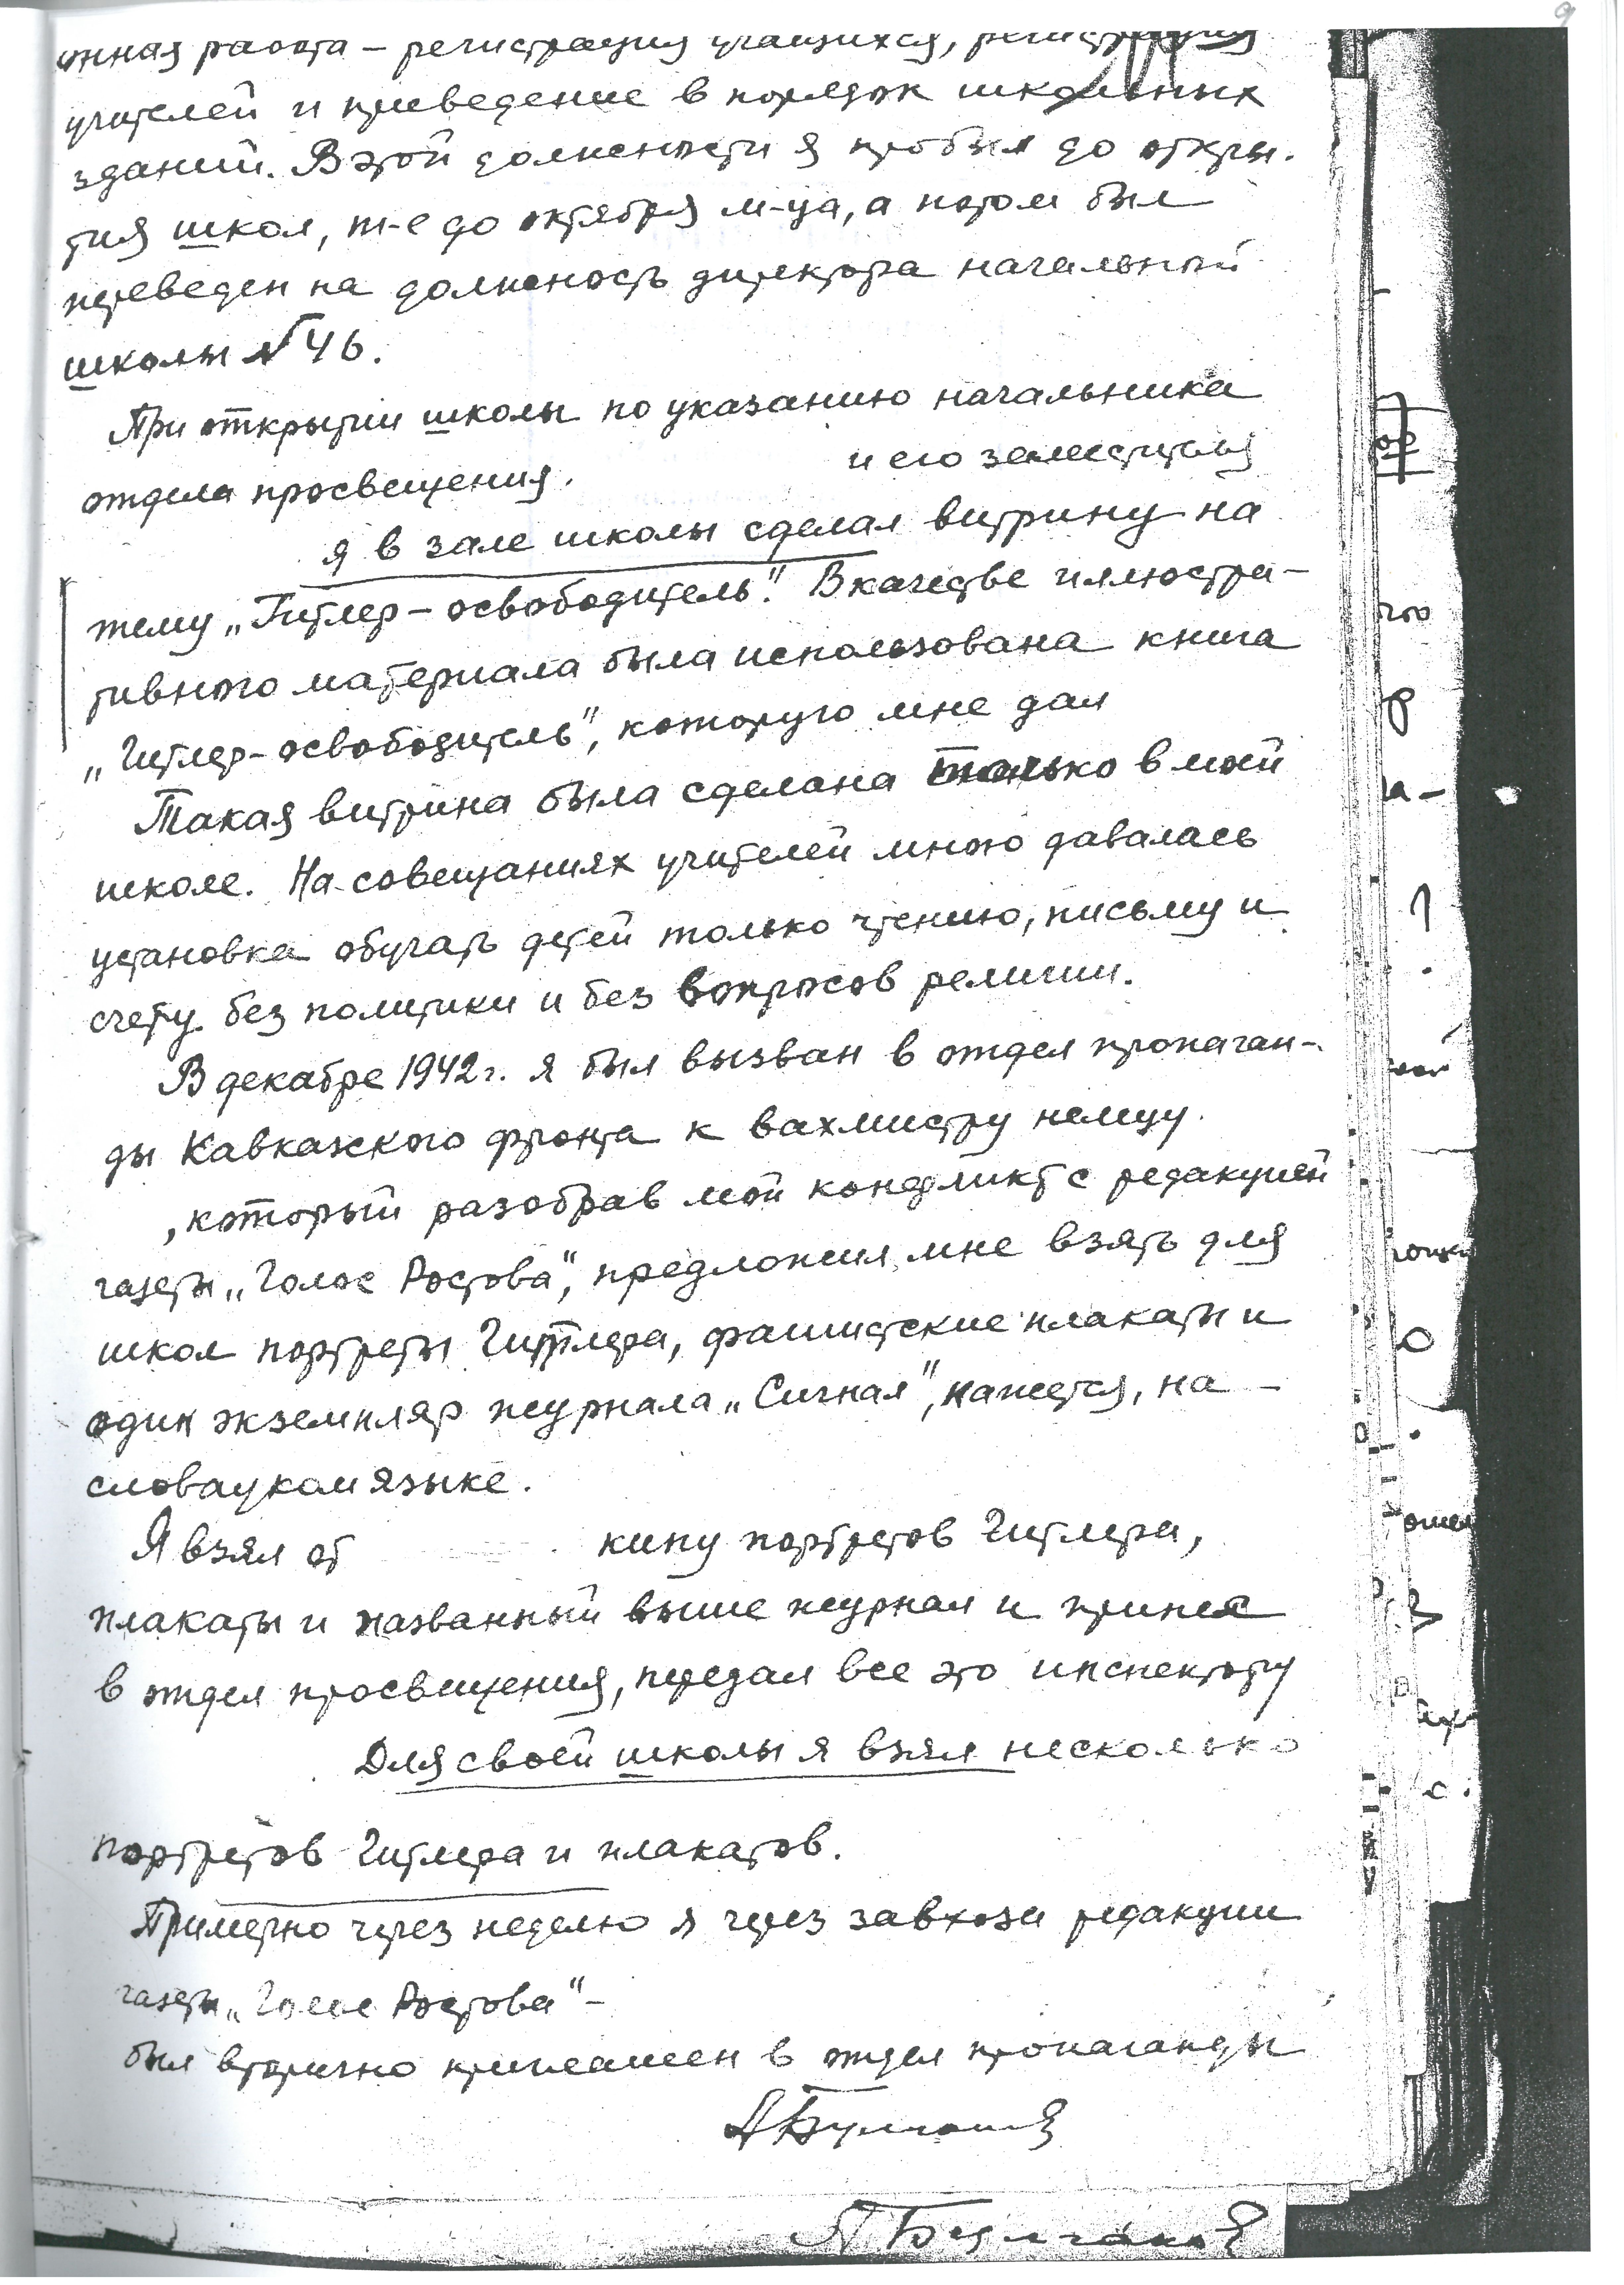 онная работа – регистрация учащихся, регистрация
учителей и приведение в порядок школьных
зданий. В этой должности я пробыл до откры-
тия школ, т-е до октября м-ца, а потом был
переведен на должность директора начальной
школы № 46.
При открытии школы по указанию начальника
отдела просвещения. и его заместителя
я в зале школы сделал витрину на
тему „Гитлер – освободитель". В качестве иллюстра-
тивного материала была использована книга
„Гитлер-освободитель", которую мне дал
Такая витрина была сделана только в моей
школе. На совещаниях учителей мною давалась
установка обучать детей только чтению, письму и
счету без политики и без вопросов религии.
В декабре 1942 г. я был вызван в отдел пропаган-
ды Кавказского фронта к вахмистру немцу
, который разобрав мой конфликт с редакцией
газеты „Голос Ростова", предложил мне взять для
школ портреты Гитлера, фашистские плакаты и
один экземпляр журнала „Сигнал", кажется, на
словацком языке.
Я взял от кипу портретов Гитлера,
плакаты и названный выше журнал и принес
в отдел просвещения, передал все это инспектору
Для своей школы я взял несколько
портретов Гитлера и плакатов.
Примерно через неделю я через завхоза редакции
газеты „Голос Ростова" –
был вторично приглашен в отдел пропаганды